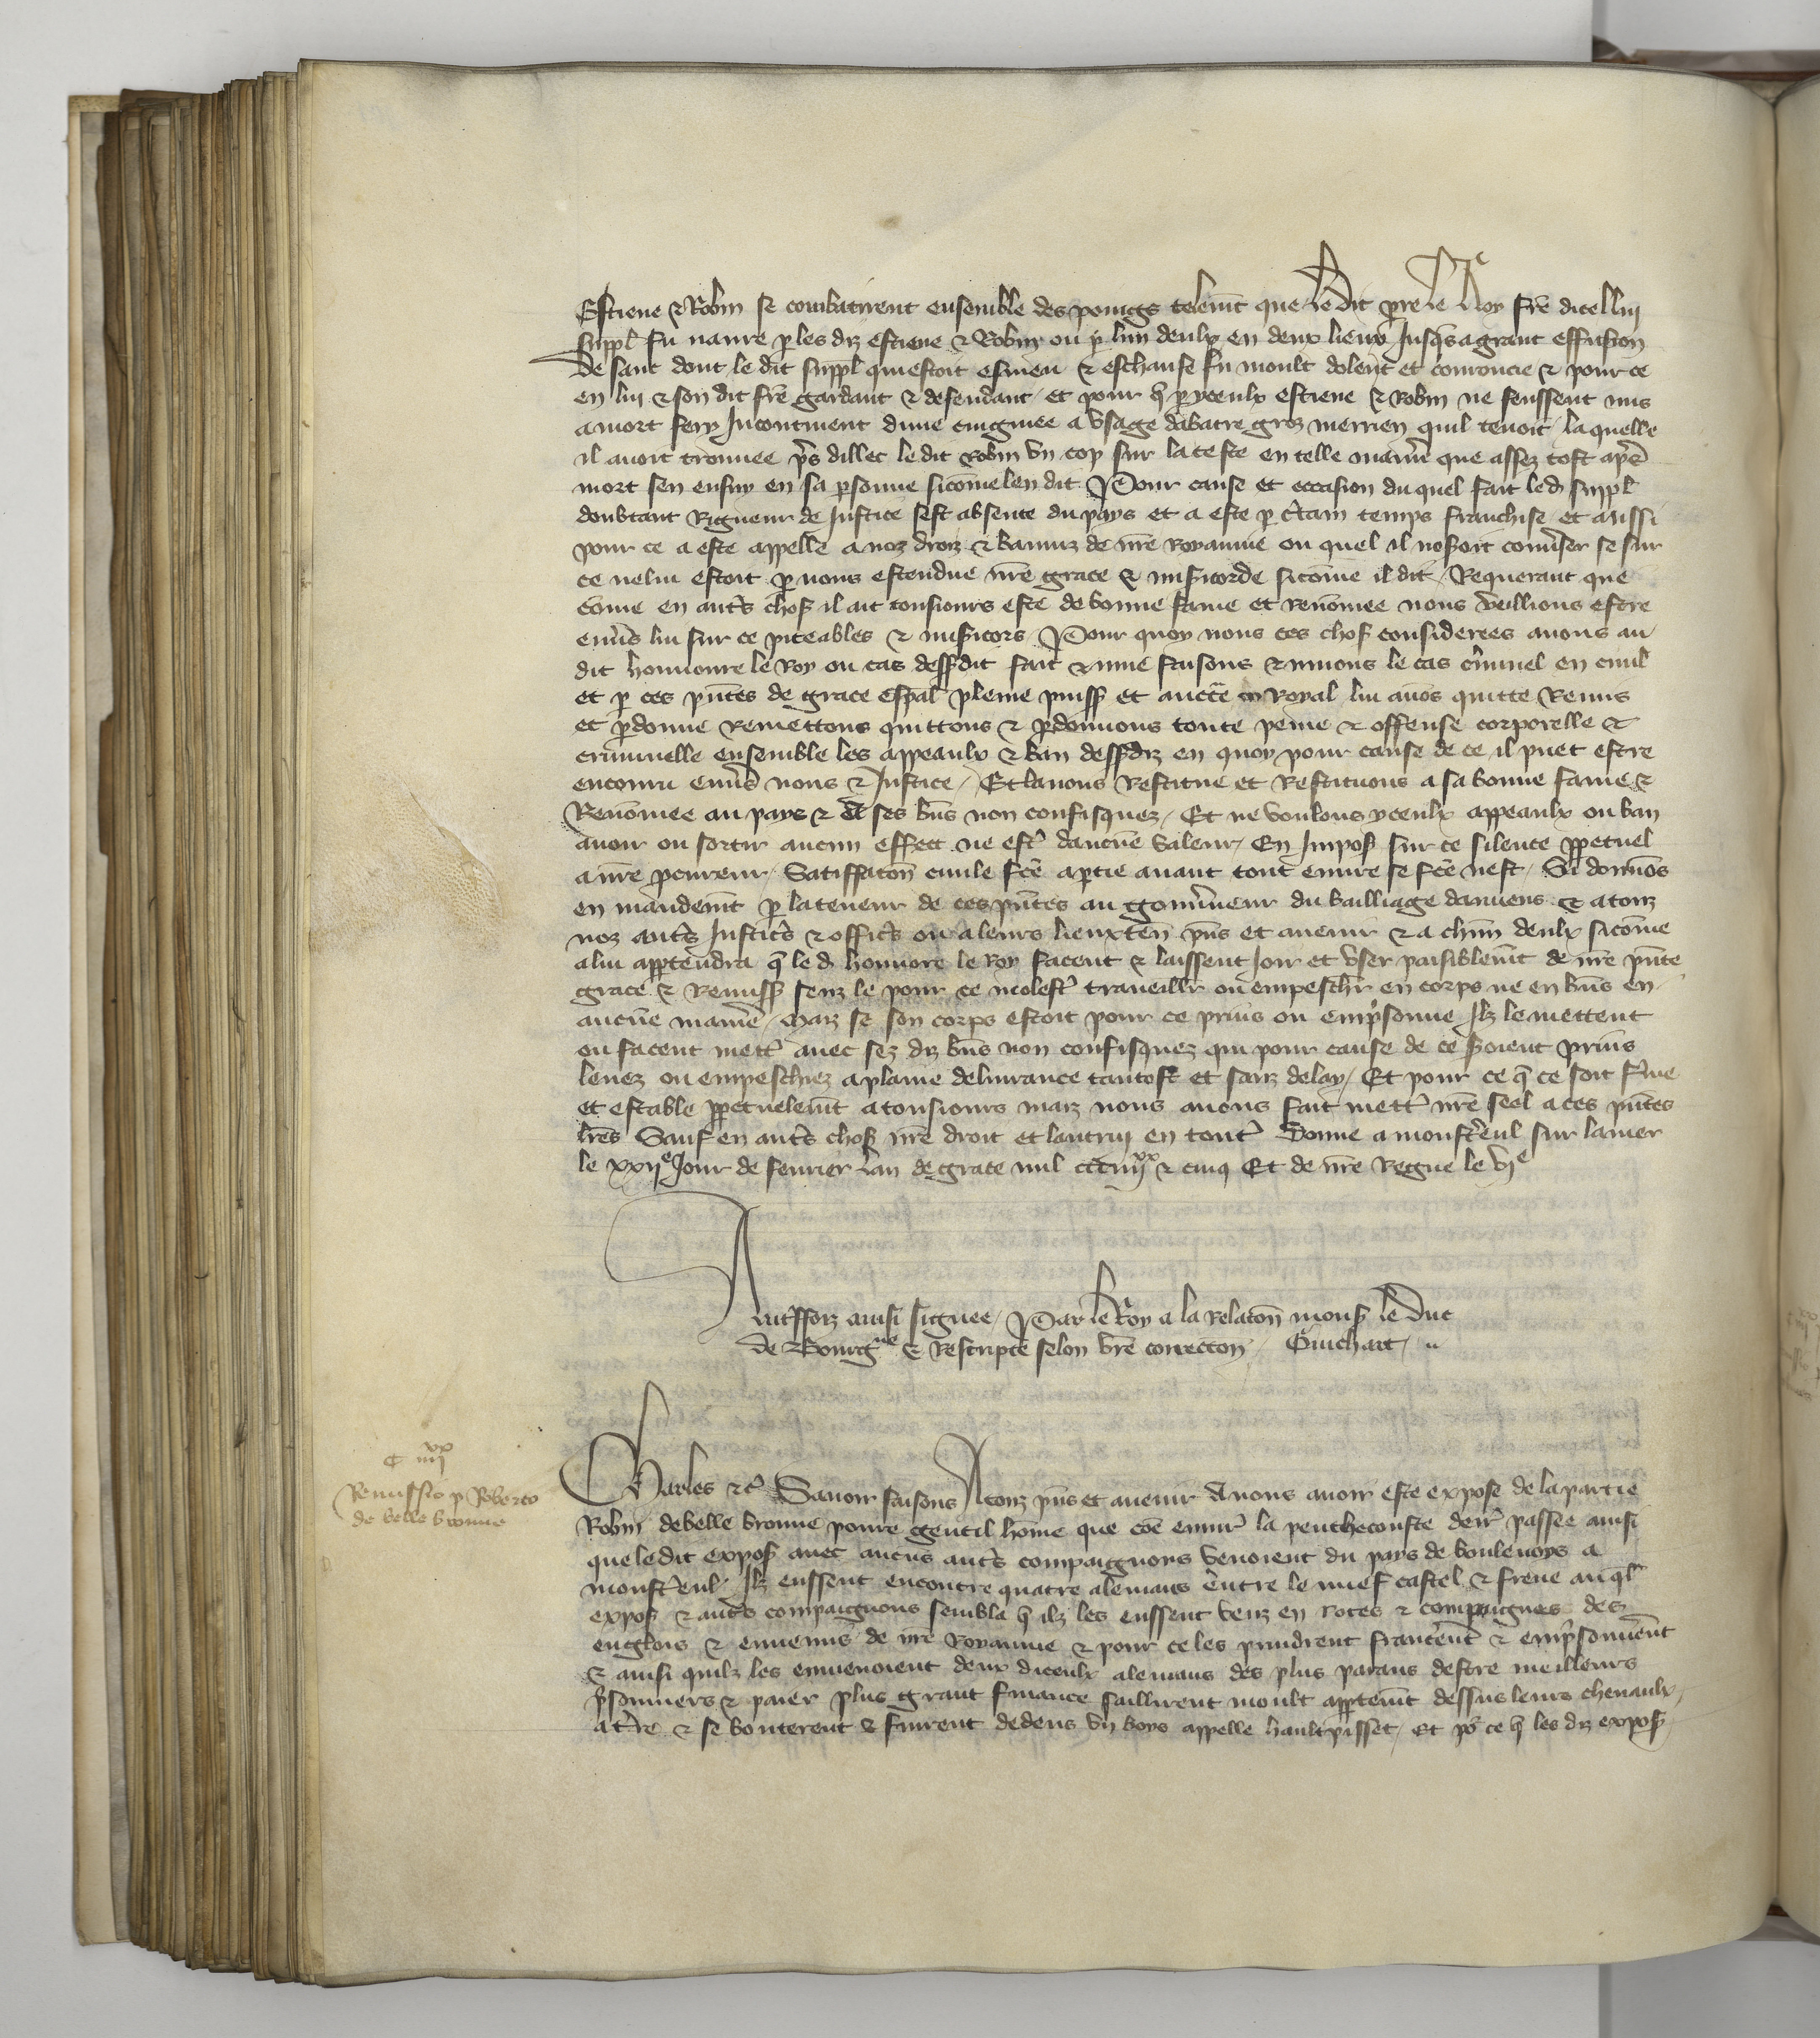 Estiene & Robin se combatirent ensemble des poings telemt que le dit pre le Roy frē dicellui
suppl fu navre p les diz estiene & Robin ou p lun deulx en deux lieux Jusqs a grant effusion
de sanc dont le dit suppl qui estoit esmeu & eschaufe fu moult dolent et couroucie & pour ce
en lui & son dit frē gardant & defendant et pour q̄ p yceulx estiene & Robin ne feussent mis
a mort fery Incontinent dune cuignee a usage dabatre groz merrien quil tenoit / la quelle
il avoit trouvee ps dillec le dit Robin un cop sur la teste en telle maniē que assez tost aps
mort sen ensuy en sa psonne sicōme len dit Pour cause et occasion du quel fait led suppl
doubtant Rigueur de Justice sest absente du pays et a este p ctain temps franchise et aussi
pour ce a este appelle a noz droiz & banniz de nrē Royaume ou quel il noseroit conuser se sur
ce ne lui estoit p nous estendue nrē grace & misicorde sicōme il dit / Requerant que
cōme en autēs chos il ait tousiours este de bonne fame et Renōmee nous veillions estre
envs lui sur ce piteables & misicors Pour quoy nous ces chos considerees avons au
dit honnoure le Roy ou cas dessdit fait & mue faisons & muons le cas cminel en civil
et p ces pntes de grace espal pleine puiss et aucte Royal lui avōs quitte Remis
et pdonne Remettons quittons & pdonnons toute peine & offense corporelle &
criminelle ensemble les appeaulx & ban dessdiz en quoy pour cause de ce il puet estre
encouru envs nous & Justice / Et lavons Restitue et Restituons a sa bonne fame &
Renōmee au pays & a ses bns non confisquez / Et ne voulons yceulx appeaulx ou ban
avoir ou sortir aucun effect ne est daucūe valeur / En Impos sur ce silence ppetuel
a nrē pcureur / Satiffacōn civile fcē a ptie avant tout euvre se fcē nest / Si donnōs
en mandemt p la teneur de ces pntes au gouvneur du bailliage damiens & a touz
noz autēs Justics & offics ou a leurs lieuxten pns et avenir & a chun deulx sicōme
a lui apptendra q̄ le d honnore le Roy facent & laissent Joir et user paisiblemt de nrē pnte
grace & Remiss senz le pour ce molest traveillr ou empeschr en corps ne en bns en
aucūe maniē / Maiz se son corps estoit pour ce prins ou empsonne Ilz le mettent
ou facent mett avec sez diz bns non confisquez qui pour cause de ce seroient prins
levez ou empeschiez a plaine delivrance tantost et sanz delay / Et pour ce q̄ ce soit fme
et estable ppetuelemt a tousiours maiz nous avons fait mett nrē seel a ces pntes
lrēs Sauf en autēs chos nrē droit et lautruy en tout Donne a monsteul sur la mer
le xxiie Jour de fevrier lan de grace mil ccciiiixx & cinq Et de nrē Regne le vie
Autffoiz ainsi signee / Par le Roy a la Relacōn mons le Duc
de Bourgne & Rescripte selon vrē correcōn / Guichart /
Charles &c Savoir faisons A touz pns et avenir A nous avoir este expose de la partie
Robin de belle bronne povre gentil hōme que cōe envir la penthecouste denr passee ainsi
que le dit expos avec aucūs autēs compaignons venoient du pays de boulenoys a
monsteul / Ilz eussent encontre quatre alemans entre le nuef castel & frene auql
expos & autēs compaignons sembla q̄ ilz les eussent veuz en rotes & compaignes des
englois & ennemis de nrē Royaume & pour ce les prindrent & empsonnent
& ainsi quilz les emmenoient deux diceulx alemans des plus parans destre meilleurs
psonniers & paier plus grant finance saillirent moult apptemt dessus leurs chevaulx /
a tre & se bouterent & furent dedens un boys appelle hault pisset / et po ce q̄ les diz expos
C iiiixx
Remissio p Roberto
de belle bronne